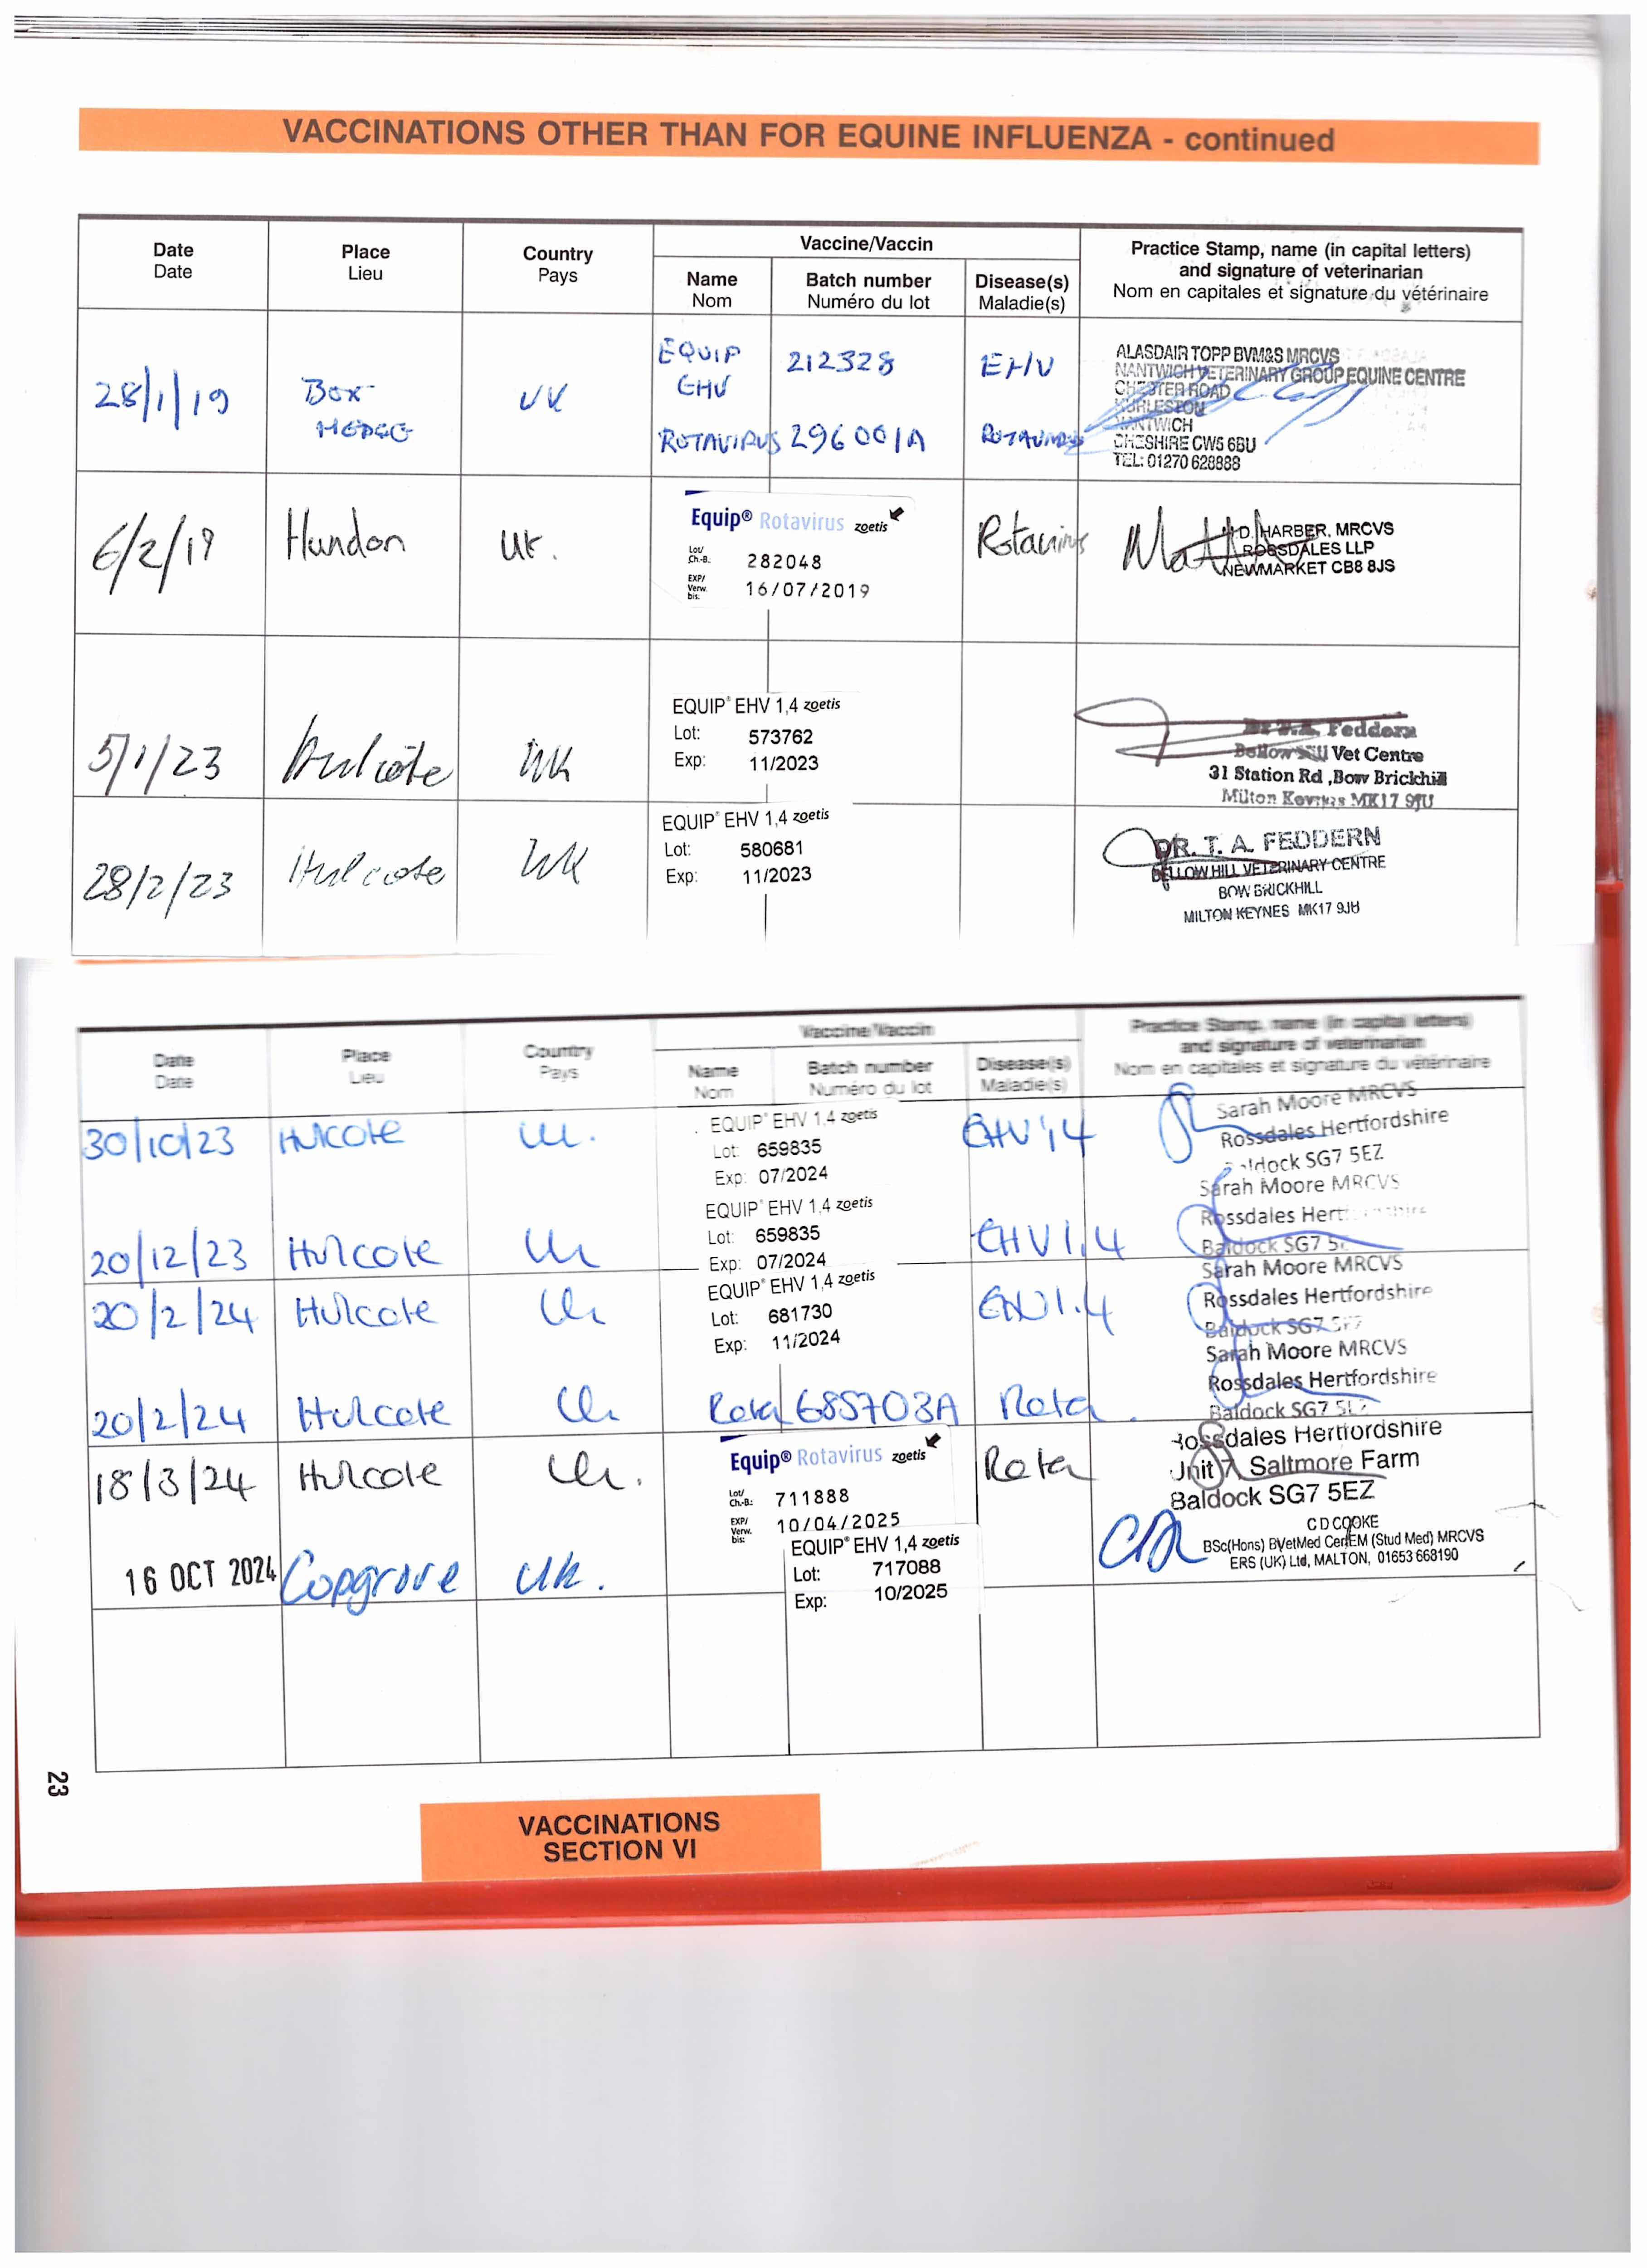 VACCINATIONS OTHER THAN FOR EQUINE INFLUENZA - continued
Date
Date
Place
Lieu
Country
Pays
Vaccine/Vaccin
Name
Nom
Batch number
Numéro du lot
Disease(s)
Maladie(s)
Practice Stamp, name (in capital letters)
and signature of veterinarian
Nom en capitales et signature du vétérinaire
28/1/19
BOX
HEDGE
UK
EQUIP
EHV
212328
EHV
ROTAVIRUS 296001A
ROTAVIRUS
ALASDAIR TOPP BVM&S MRCVS
NANTWICH VETERINARY GROUP EQUINE CENTRE
CHESTER ROAD
HURLESTON
NANTWICH
CHESHIRE CW5 6BU
TEL: 01270 628888
6/2/19
Hundon
UK.
Equip® Rotavirus zoetis
Lot/
Ch.-B.: 282048
EXP/
Verw.
bis: 16/07/2019
Rotavirus
D. HARBER, MRCVS
ROSSDALES LLP
NEWMARKET CB8 8JS
5/1/23
Hulcote
UK
EQUIP® EHV 1,4 zoetis
Lot: 573762
Exp: 11/2023
Dr T.A. Feddern
Bellow Hill Vet Centre
31 Station Rd ,Bow Brickhill
Milton Keynes MK17 9JU
28/2/23
Hulcote
UK
EQUIP® EHV 1,4 zoetis
Lot: 580681
Exp: 11/2023
DR. T. A. FEDDERN
BELLOW HILL VETERINARY CENTRE
BOW BRICKHILL
MILTON KEYNES MK17 9JU
Date
Date
Place
Lieu
Country
Pays
Vaccine/Vaccin
Name
Nom
Batch number
Numéro du lot
Disease(s)
Maladie(s)
Practice Stamp, name (in capital letters)
and signature of veterinarian
Nom en capitales et signature du vétérinaire
30/10/23
Hulcote
UK.
EQUIP® EHV 1,4 zoetis
Lot: 659835
Exp: 07/2024
EHV 1,4
Sarah Moore MRCVS
Rossdales Hertfordshire
Baldock SG7 5EZ
20/12/23
Hulcote
UK
EQUIP® EHV 1,4 zoetis
Lot: 659835
Exp: 07/2024
EHV 1.4
Sarah Moore MRCVS
Rossdales Hertfordshire
Baldock SG7 5
20/2/24
Hulcote
UK
EQUIP® EHV 1,4 zoetis
Lot: 681730
Exp: 11/2024
EHV 1.4
Sarah Moore MRCVS
Rossdales Hertfordshire
Baldock SG7 5EZ
20/2/24
Hulcote
UK
Rota 685703A
Rota.
Sarah Moore MRCVS
Rossdales Hertfordshire
Baldock SG7 5EZ
18/3/24
Hulcote
UK.
Equip® Rotavirus zoetis
Lot/
Ch.-B.: 711888
EXP/
Verw.
bis: 10/04/2025
Rota
Rossdales Hertfordshire
Unit 7, Saltmore Farm
Baldock SG7 5EZ
16 OCT 2024
Copgrove
UK.
EQUIP® EHV 1,4 zoetis
Lot: 717088
Exp: 10/2025
C D COOKE
BSc(Hons) BVetMed CertEM (Stud Med) MRCVS
ERS (UK) Ltd, MALTON, 01653 668190
23
VACCINATIONS
SECTION VI